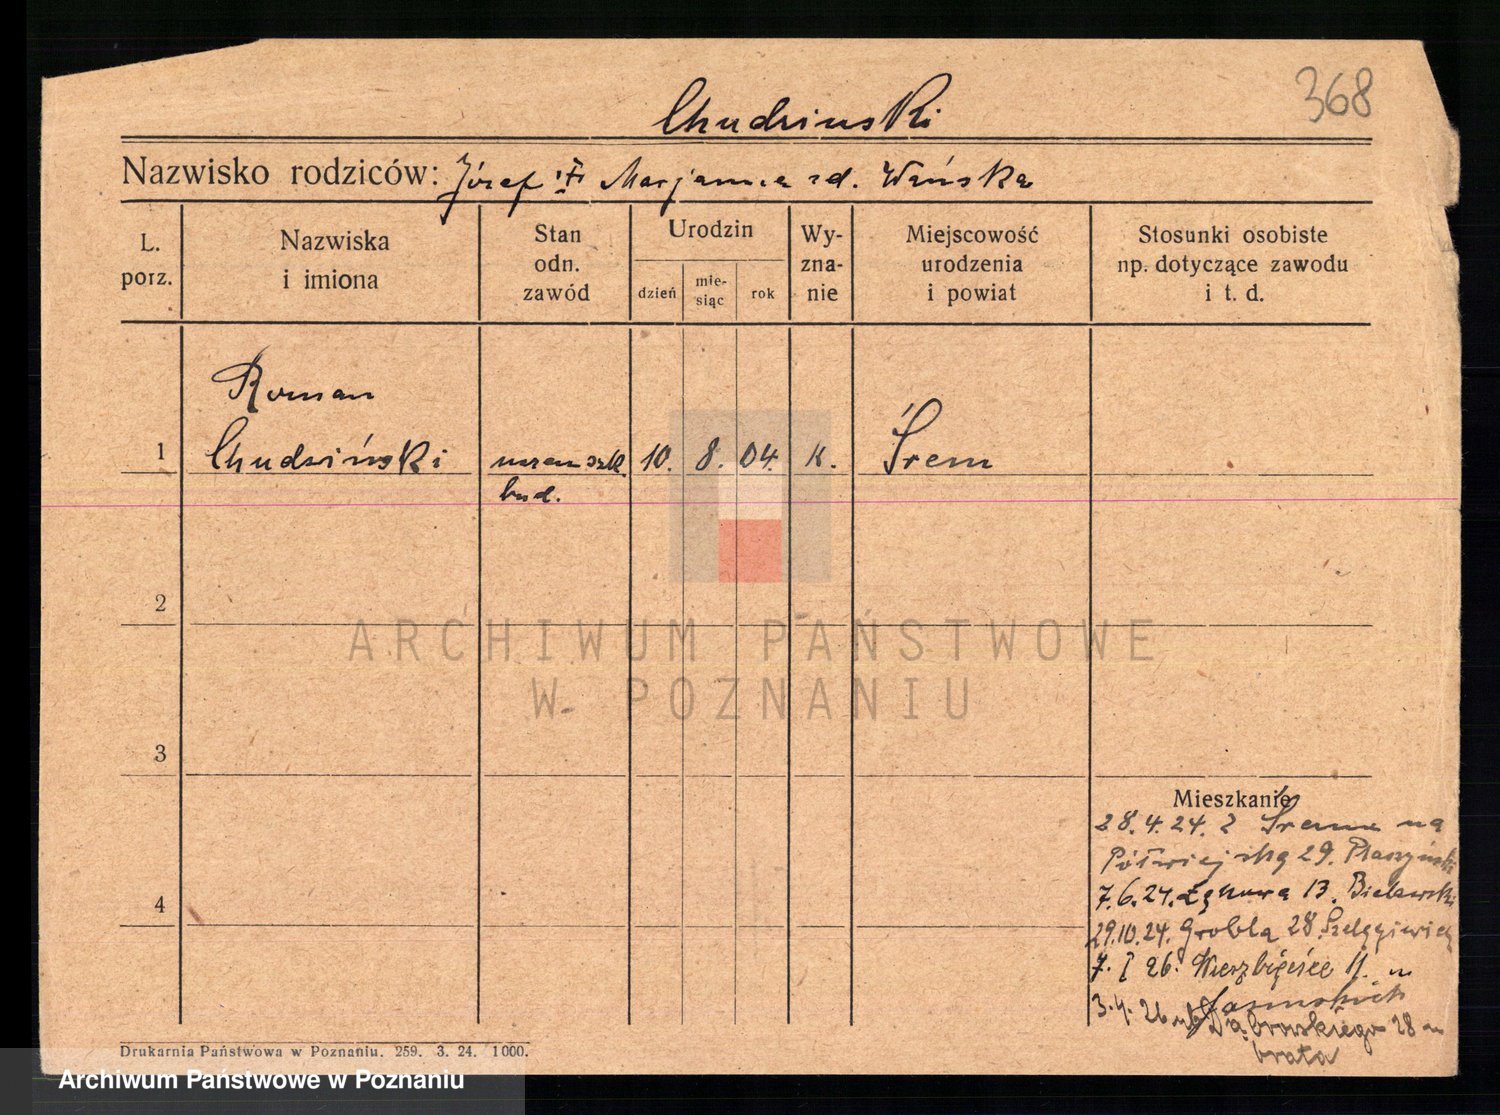 368
Chudzinski
Nazwisko rodziców: Józef i Marjanna zd. Wańska
L. porz.
Nazwiska i imiona
Stan odn. zawód
Urodzin
dzień
miesiąc
rok
Wyznanie
Miejscowość urodzenia i powiat
Stosunki osobiste np. dotyczące zawodu i t. d.
Roman
1 Chudziński uczeń szk. 10. 8. 04. K. Śrem
bud.
2
3
Mieszkanie
28.4.24. z Śremu na
Półwiejską 29.
7.6.24. Łąkowa 13. Bielawski
4
29.10.24. Grobla 28
7. I 26. Wierzbięcice 11. u
3.4.26 Dąbrowskiego 28 u
brata
Drukarnia Państwowa w Poznaniu. 259. 3. 24. 1000.
ARCHIWUM PAŃSTWOWE
W POZNANIU
Archiwum Państwowe w Poznaniu